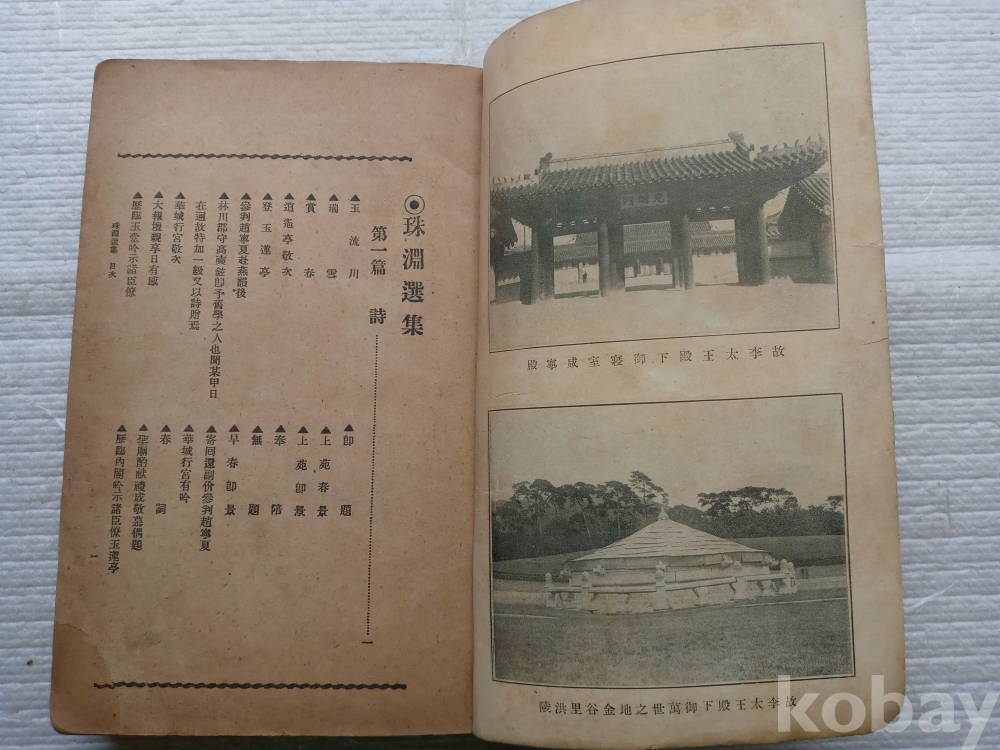 故李太王殿下御寢室咸寧殿
故李太王殿下御萬世之地金谷里洪陵
◉珠淵選集
第一篇 詩………一
▲玉流川
▲瑞雪
▲賞春
▲逍遙亭敬次
▲登玉蓮亭
▲參判趙寧夏赴燕韻後
▲林川郡守高廣鎰卽予舊學之人也聞某甲日
在邇故特加一級又以詩贈焉
▲華城行宮敬次
▲大報壇親享日有感
▲歷臨玉堂吟示諸臣僚
▲卽題
▲上苑春景
▲上苑卽景
▲奉陪
▲無題
▲早春卽景
▲寄回還副价參判趙寧夏
▲華城行宮有吟
▲春詞
▲聖廟酌献禮成敬慕偶題
▲歷臨內閣吟示諸臣僚玉蓮亭
珠淵選集 目次
一
kobay